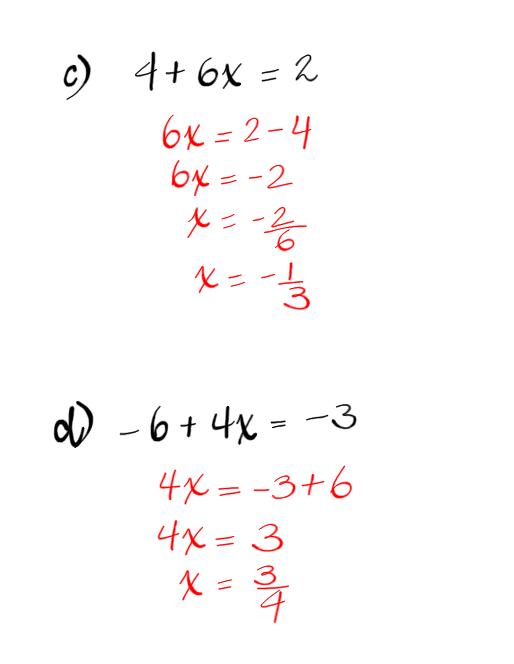 c) 4 + 6x = 2
6x = 2 - 4
6x = -2
x = -2/6
x = -1/3
d) -6 + 4x = -3
4x = -3 + 6
4x = 3
x = 3/4